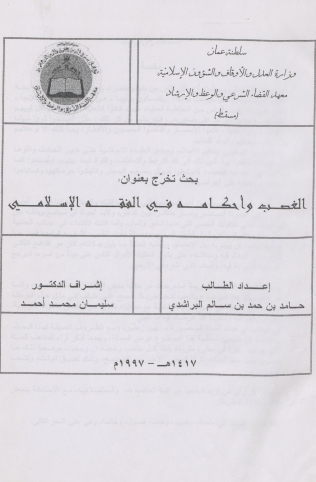 سلطنة عمان
وزارة العدل والأوقاف والشؤون الإسلامية
معهد القضاء الشرعي والوعظ والإرشاد
(مسقط)
بحث تخرّج بعنوان:
الغصب وأحكامه في الفقه الإسلامي
إعداد الطالب
حامد بن حمد بن سالم البراشدي
إشراف الدكتور
سليمان محمد أحمد
١٤١٧هـ - ١٩٩٧م